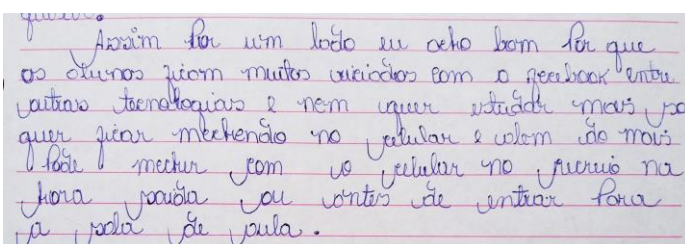 Assim por um lado eu acho bom por que
os alunos ficam muitos viciados com o facebook entre
outras tecnologias e nem quer estudar mais so
quer ficar mechendo no celular e alem do mais
pode mecher com o celular no recreio na
hora saida ou antes de entrar para
a sala de aula.